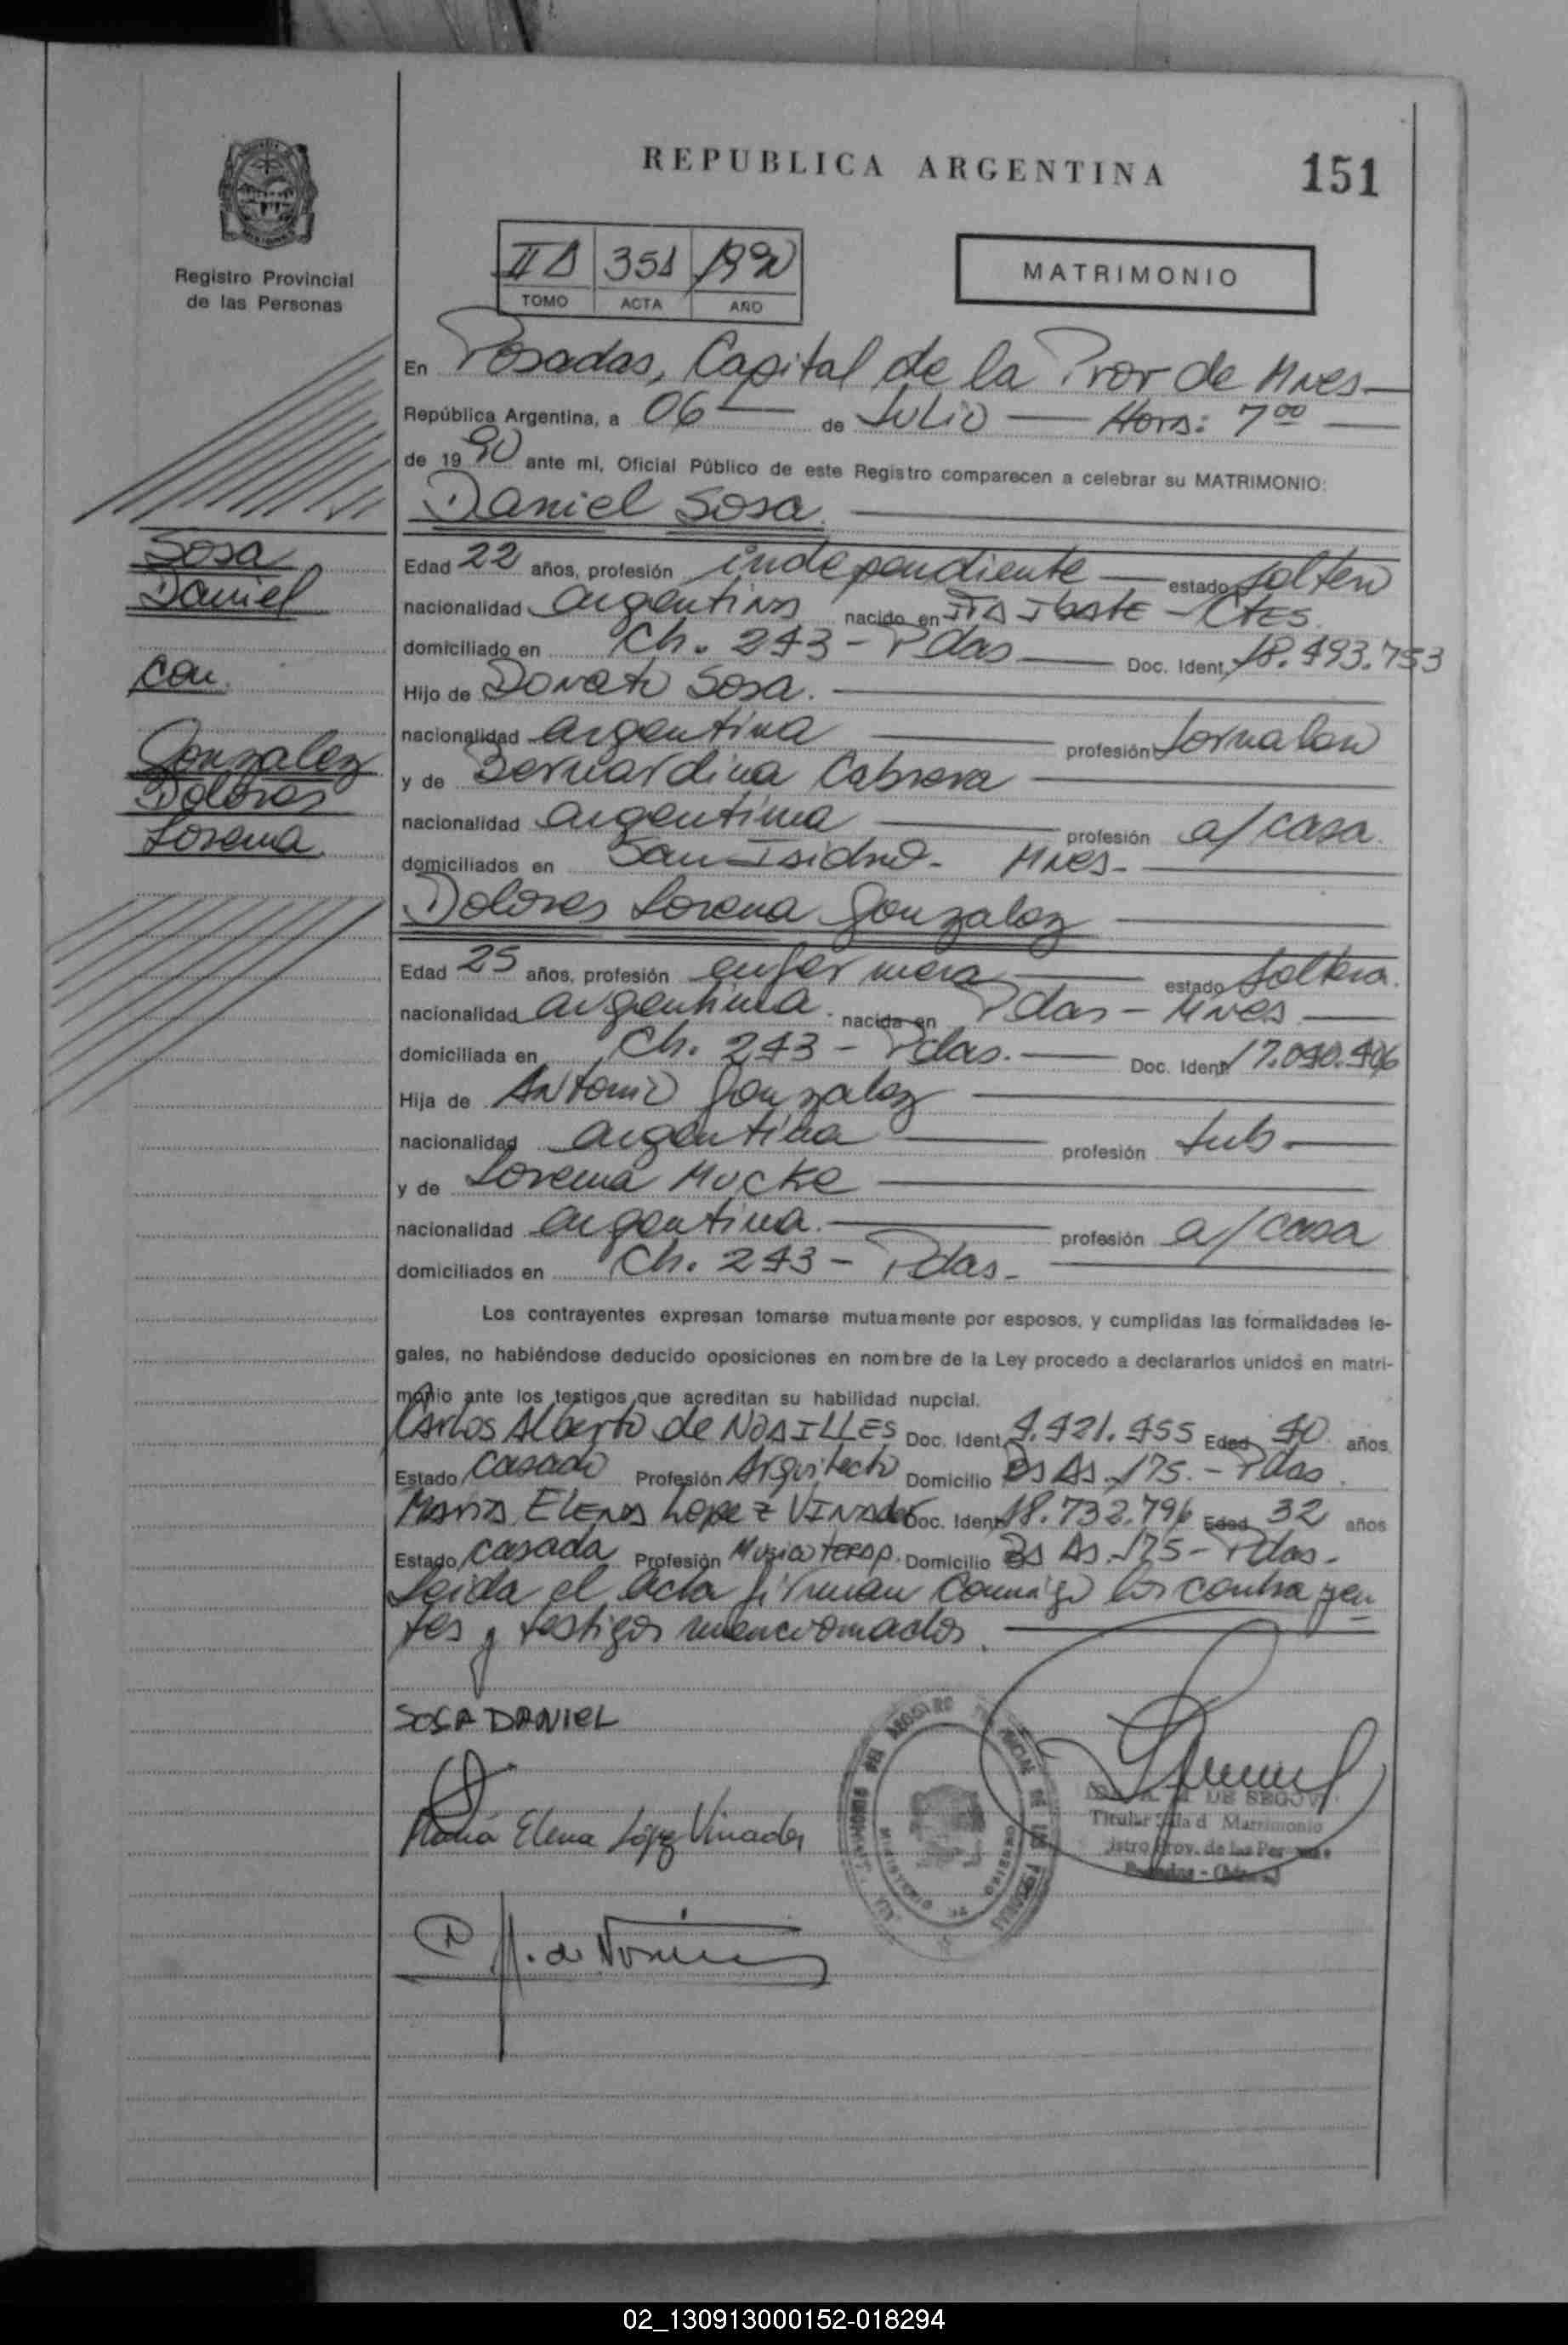 REPUBLICA ARGENTINA
151
Registro Provincial
de las Personas
II A 351 1990
TOMO ACTA AÑO
MATRIMONIO
En Posadas, Capital de la Prov de Mnes
República Argentina, a 06 de Julio Hora: 7 00
de 1990 ante mi, Oficial Público de este Registro comparecen a celebrar su MATRIMONIO:
Daniel Sosa.
Sosa
Daniel
con
Gonzalez
Dolores
Lorena
Edad 22 años, profesión independiente estado soltero
nacionalidad argentina nacido en Ita Ibate - Ctes.
domiciliado en Ch. 243 - Pdas Doc. Ident. 18.493.753
Hijo de Donato Sosa.
nacionalidad argentina profesión Jornalero
y de Bernardina Cabrera
nacionalidad argentina profesión a/casa.
domiciliados en San Isidro - Mnes -
Dolores Lorena Gonzalez
Edad 25 años, profesión enfermera estado soltera.
nacionalidad argentina. nacida en Pdas - Mnes
domiciliada en Ch. 243 - Pdas. Doc. Ident. 17.040.
Hija de Antonio Gonzalez
nacionalidad argentina profesión Jub.
y de Lorena Mucke
nacionalidad argentina. profesión a/casa
domiciliados en Ch. 243 - Pdas -
Los contrayentes expresan tomarse mutuamente por esposos, y cumplidas las formalidades le-
gales, no habiéndose deducido oposiciones en nombre de la Ley procedo a declararlos unidos en matri-
monio ante los testigos que acreditan su habilidad nupcial.
Carlos Alberto de NOAILLES Doc. Ident. 4.421.455 Edad 40 años
Estado Casado Profesión Arquitecto Domicilio Bs As. 175. - Pdas.
Maria Elena Lopez Vinader Doc. Ident. 18.732.796 Edad 32 años
Estado Casada Profesión Musicoterap. Domicilio Bs As. 175 - Pdas.
Leida el acta firman conmigo los contrayen
tes y testigos mencionados.
SOSA DANIEL
Maria Elena López Vinader
DE SEGOV
Titular Sala d Matrimonio
istro Prov. de las Per
02_130913000152-018294